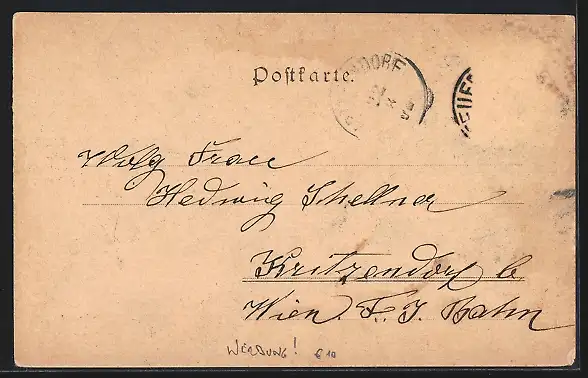 Postkarte.
DORF
Wolg Frau
Hedwig Skellner
Kritzendorf b
Wien. F. J. Bahn
WERBUNG! €10